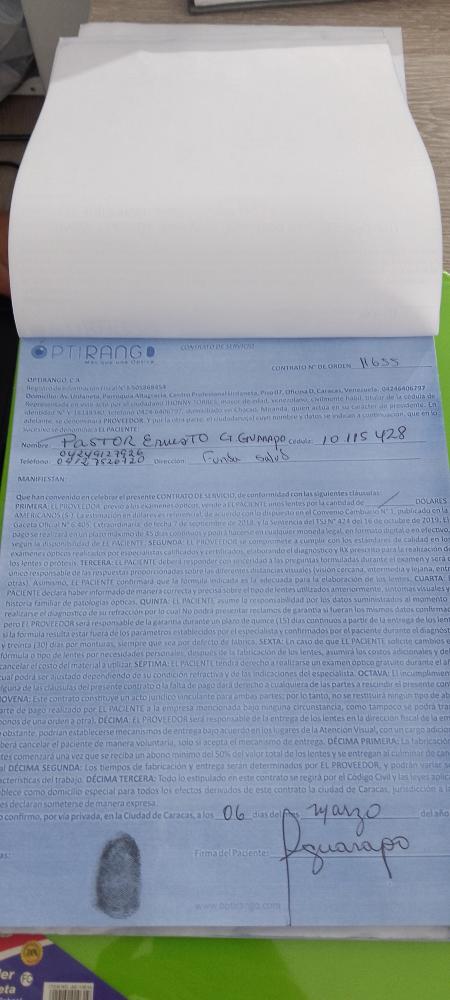 OPTIRANGO
Más que una Óptica
CONTRATO DE SERVICIO
CONTRATO N° DE ORDEN 11655
OPTIRANGO, C.A
Registro de Información Fiscal N°
Domicilio: Av. Urdaneta, Parroquia Altagracia, Centro Profesional Urdaneta, Piso 07, Oficina D, Caracas, Venezuela. 04246406797
Representada en este acto por el ciudadano JHONNY TORRES, mayor de edad, venezolano, civilmente hábil, titular de la cédula de
identidad N° V domiciliado en Chacao, Miranda, quien actúa en su carácter de presidente. En
adelante, se denominará PROVEEDOR. Y por la otra parte, el ciudadano(a) cuyos nombre y datos se indican a continuación, que en lo
sucesivo se denominará EL PACIENTE:
Nombre: PASTOR Ernesto G. Guarapo Cédula: 10 115 428
04249127926
Teléfono: 04127520720 Dirección: Funda Salud
MANIFIESTAN:
Que han convenido en celebrar el presente CONTRATO DE SERVICIO, de conformidad con las siguientes cláusulas:
PRIMERA: EL PROVEEDOR, previo a los exámenes ópticos, vende a EL PACIENTE unos lentes por la cantidad de DOLARES
AMERICANOS ( La estimación en dólares es referencial, de acuerdo con lo dispuesto en el Convenio Cambiario N° 1, publicado en la
Gaceta Oficial N° 6.405, Extraordinaria, de fecha 7 de septiembre de 2018, y la Sentencia del TSJ N° 424 del 16 de octubre de 2019. El
pago se realizará en un plazo máximo de 15 días continuos y podrá hacerse en cualquier moneda legal, en formato digital o en efectivo
según la disponibilidad de EL PACIENTE. SEGUNDA: EL PROVEEDOR se compromete a cumplir con los estándares de calidad en los
exámenes ópticos realizados por especialistas calificados y certificados, elaborando el diagnóstico y RX prescrito para la realización de
los lentes o prótesis. TERCERA: EL PACIENTE deberá responder con sinceridad a las preguntas formuladas durante el examen y será
único responsable de las respuestas proporcionadas sobre las diferentes distancias visuales (visión cercana, intermedia y lejana, entre
otras). Asimismo, EL PACIENTE confirmará que la fórmula indicada es la adecuada para la elaboración de los lentes. CUARTA:
PACIENTE declara haber informado de manera correcta y precisa sobre el tipo de lentes utilizados anteriormente, síntomas visuales y
historia familiar de patologías ópticas. QUINTA: EL PACIENTE, asume la responsabilidad por los datos suministrados al momento
realizarse el diagnóstico de su refracción por lo cual No podrá presentar reclamos de garantía si fueran los mismos datos confirmados
pero EL PROVEEDOR será responsable de la garantía durante un plazo de quince (15) días continuos a partir de la entrega de los lentes
si la formula resulta estar fuera de los parámetros establecidos por el especialista y confirmados por el paciente durante el diagnóstico
y treinta (30) días por monturas, siempre que sea por defecto de fábrica. SEXTA: En caso de que EL PACIENTE solicite cambios
fórmula o tipo de lentes por necesidades personales, después de la fabricación de los lentes, asumirá los costos adicionales y
cancelar el costo del material a utilizar. SÉPTIMA: EL PACIENTE tendrá derecho a realizarse un examen óptico gratuito durante el
cual podrá ser ajustado dependiendo de su condición refractiva y de las indicaciones del especialista. OCTAVA: El incumplimiento
alguna de las cláusulas del presente contrato o la falta de pago dará derecho a cualquiera de las partes a rescindir el presente
NOVENA: Este contrato constituye un acto jurídico vinculante para ambas partes; por lo tanto, no se restituirá ningún tipo de
arte de pago realizado por EL PACIENTE a la empresa mencionada bajo ninguna circunstancia, como tampoco se podrá
bonos de una orden a otra). DÉCIMA: EL PROVEEDOR será responsable de la entrega de los lentes en la dirección fiscal de la
obstante, podrían establecerse mecanismos de entrega bajo acuerdo en los lugares de la Atención Visual, con un cargo
berá cancelar el paciente de manera voluntaria, solo si acepta el mecanismo de entrega. DÉCIMA PRIMERA: La fabricación
tes comenzará una vez que se reciba un abono mínimo del 50% del valor total de los lentes y se entregan al culminar de
al DÉCIMA SEGUNDA: Los tiempos de fabricación y entrega serán determinados por EL PROVEEDOR, y podrán variar
acterísticas del trabajo. DÉCIMA TERCERA: Todo lo estipulado en este contrato se regirá por el Código Civil y las leyes
blece como domicilio especial para todos los efectos derivados de este contrato la ciudad de Caracas, jurisdicción a
es declaran someterse de manera expresa.
o confirmo, por vía privada, en la Ciudad de Caracas, a los 06 días del mes marzo del año
as: Firma del Paciente: Pguarapo
www.optirango.com